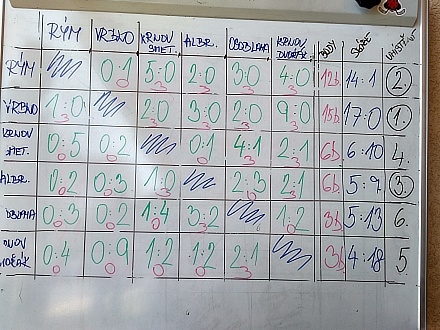 RÝM VRBNO KRNOV SMET. ALBR. OSOBLAHA KRNOV DVOŘÁK. BODY SKÓRE
RÝM 0:1 5:0 2:0 3:0 4:0 12b 14:1 2.
0 3 3 3 3
VRBNO 1:0 2:0 3:0 2:0 9:0 15b 17:0 1.
3 3 3 3 3
KRNOV SMET. 0:5 0:2 0:1 4:1 2:1 6b 6:10 4.
0 0 0 3 3
ALBR. 0:2 0:3 1:0 2:3 2:1 6b 5:9 3.
0 0 3 0 3
OSOBLAHA 0:3 0:2 1:4 3:2 1:2 3b 5:13 6.
0 0 0 3 0
0:4 0:9 1:2 1:2 2:1 3b 4:18 5.
0 0 0 0 3